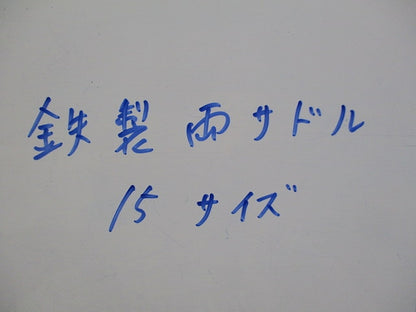 鉄製両サドル
15サイズ